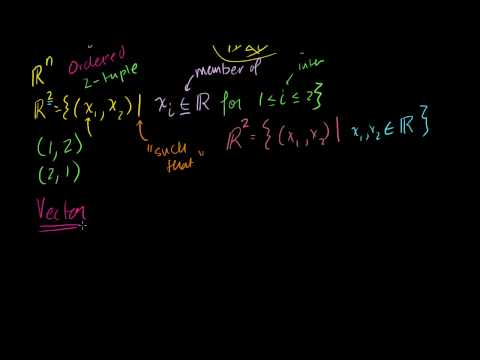 ℝⁿ
ordered
2-tuple
member of
ℝ² = {(x₁, x₂) | xᵢ ∈ ℝ for 1 ≤ i ≤ 2}
(1, 2)
"such that"
ℝ² = {(x₁, x₂) | x₁, x₂ ∈ ℝ}
(2, 1)
Vector